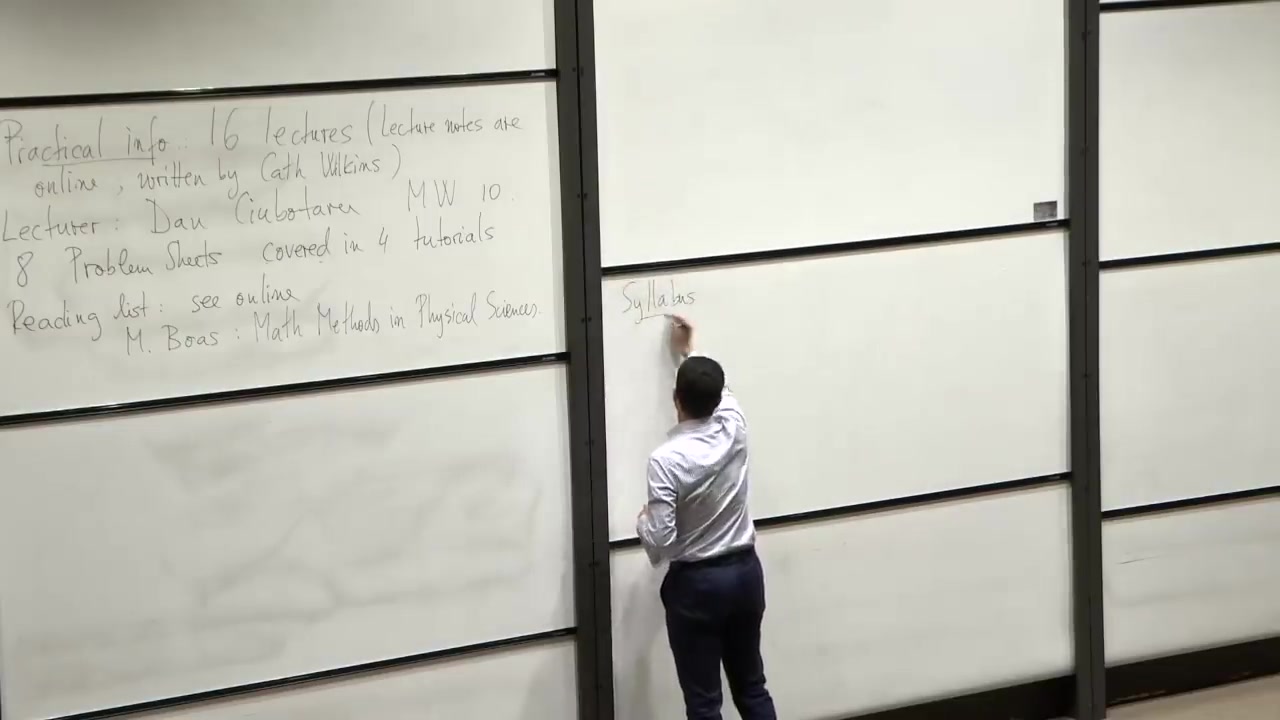 Practical info: 16 lectures (lecture notes are
online, written by Cath Wilkins)
Lecturer: Dan Ciubotaru MW 10.
8 Problem Sheets covered in 4 tutorials
Reading list: see online
M. Boas: Math Methods in Physical Sciences.
Syllabus